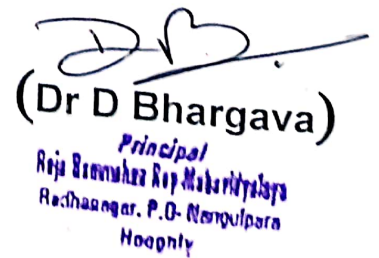 (Dr D Bhargava)
Principal
Raja Rammohan Roy Mahavidyalaya
Radhanagar. P.O- Nangulpara
Hooghly